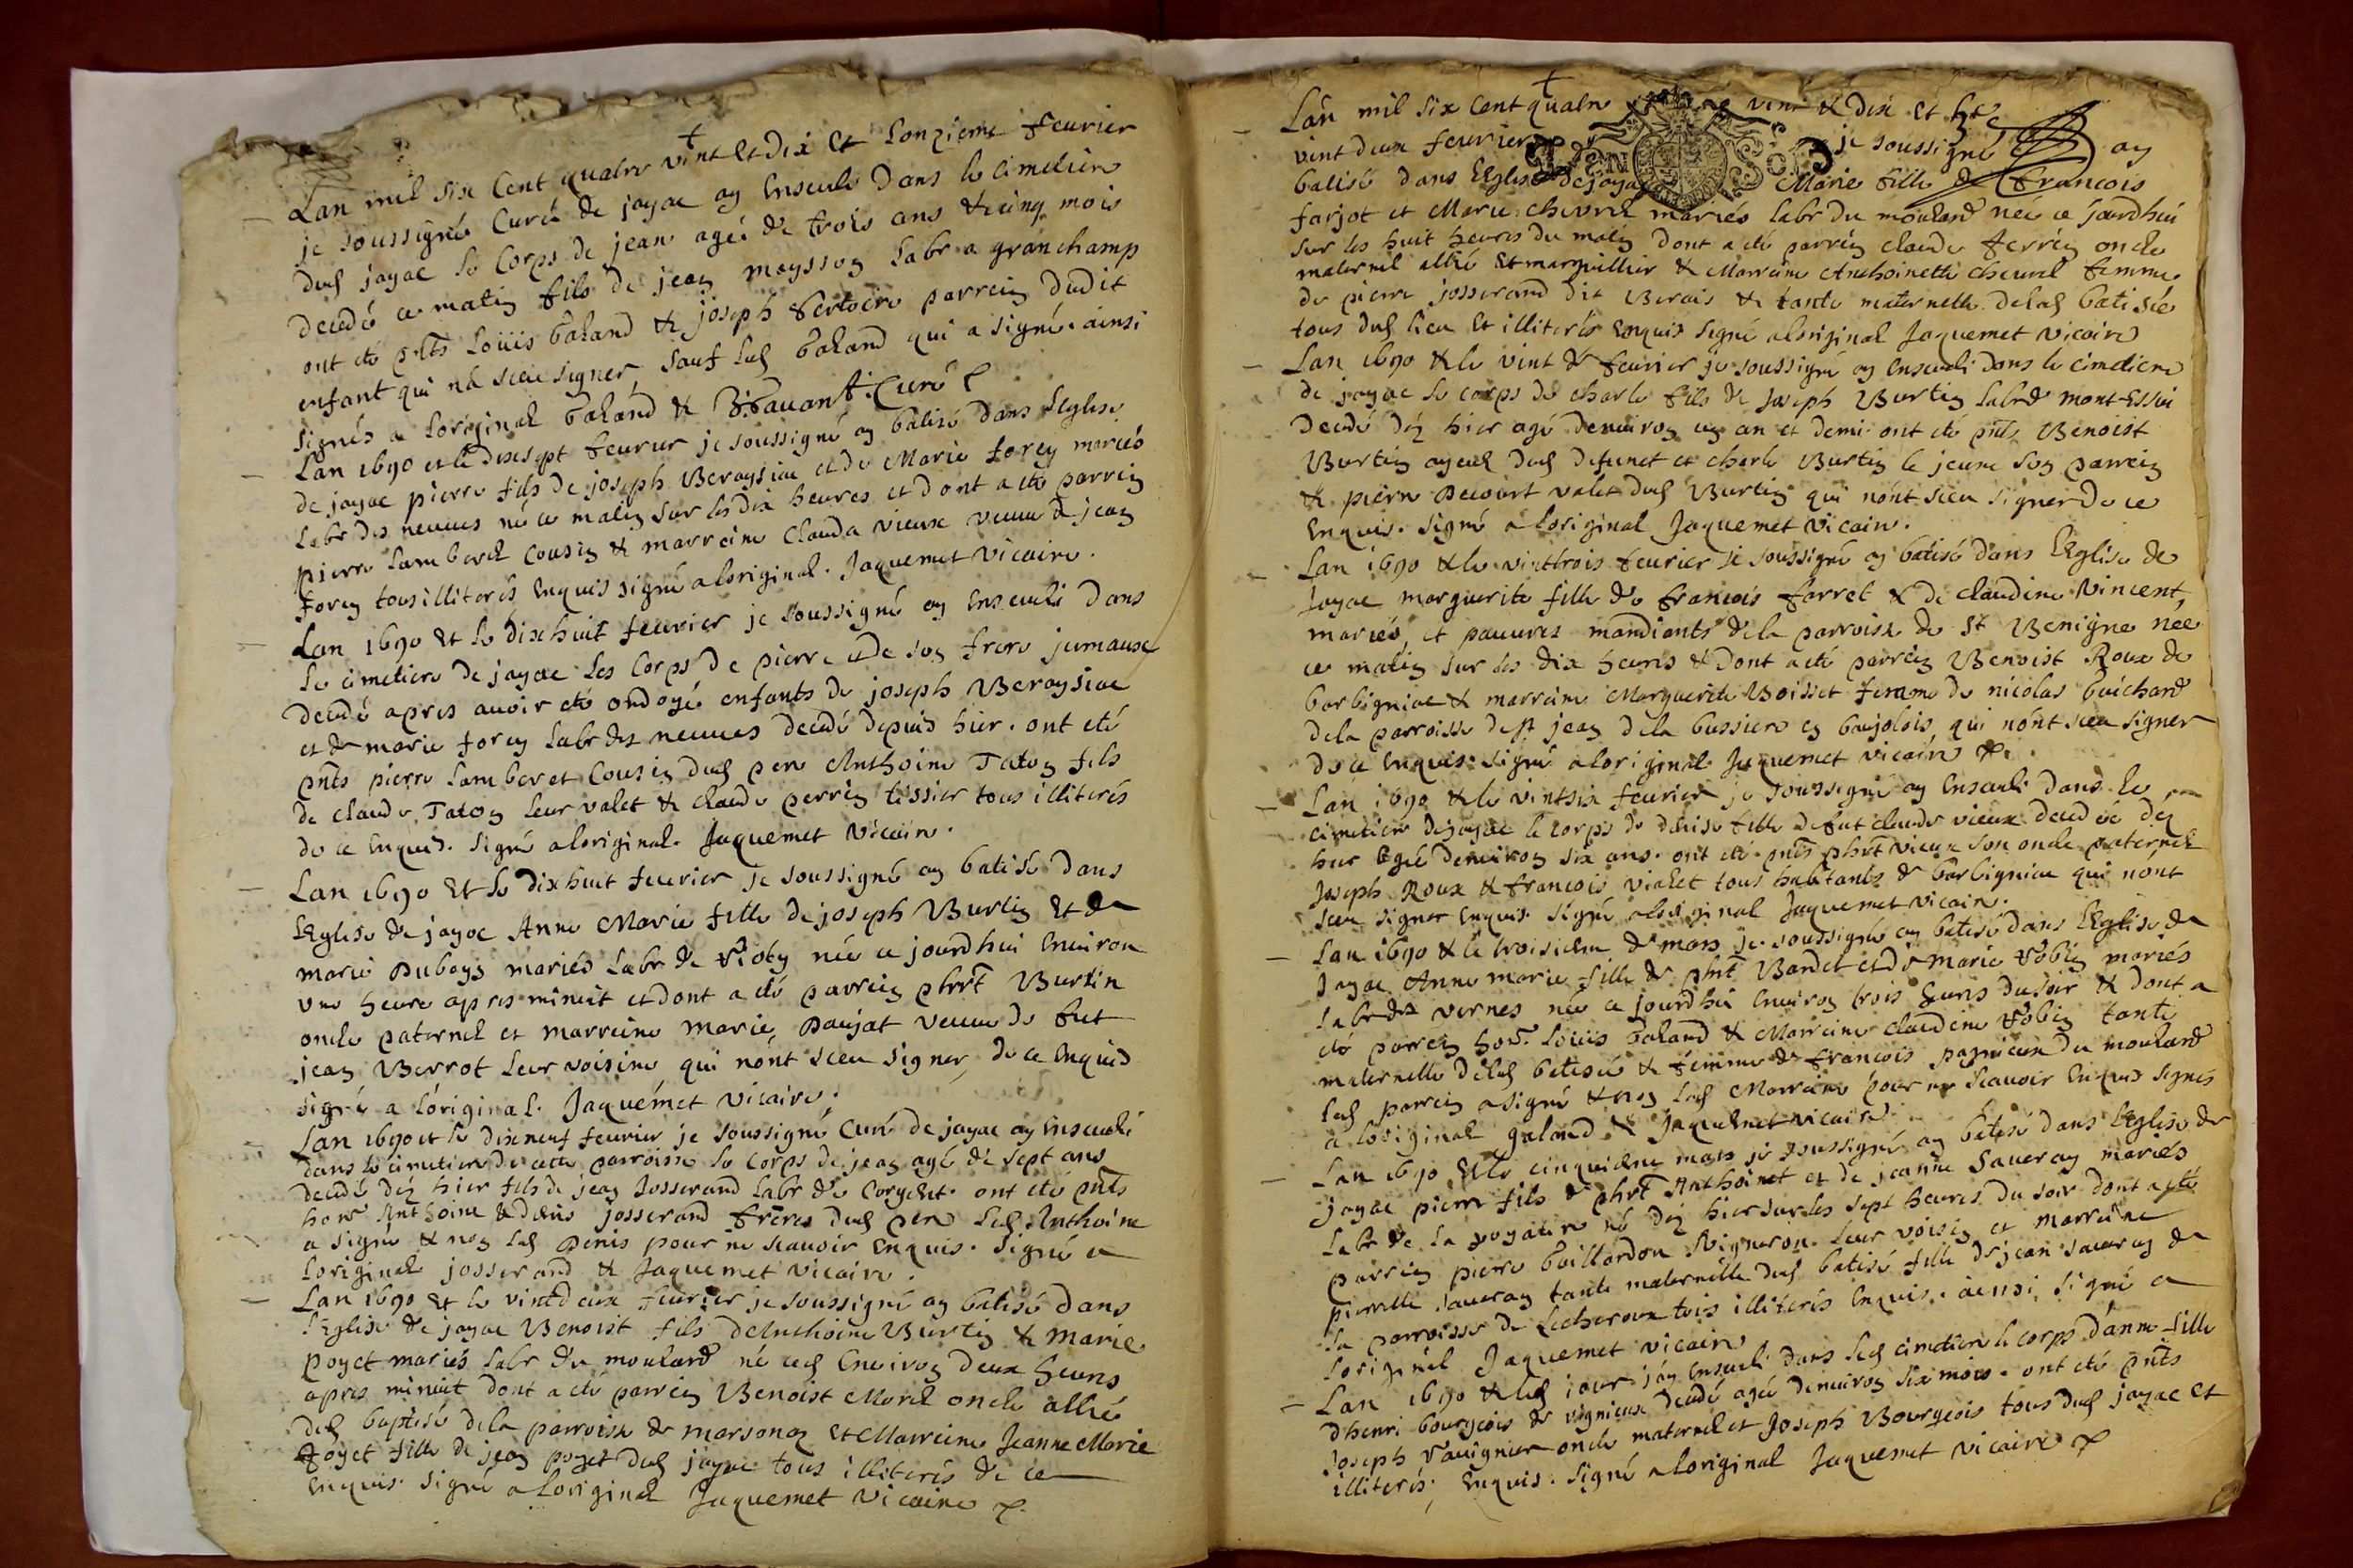 Lan mil six Cent quatre vint et dix et Lonzieme feurier
je soussigné Curé de jayac ay Enseueli dans le cimetiere
dud jayac le Corps de jean agé de trois ans & cinq mois
decedé ce matin fils de jean mayssoy labr a granchamp
ont eté pnts Loüis Galand & joseph parrein dudit
enfant qui na sceu signer, sauf led Galand qui a signé. ainsi
signés a Loriginal Galand & Curé
Lan 1690 et le dixsept feurier je soussigné ay batisé dans LEglise
de jayac pierre fils de joseph Beraysiac et de Marie forey mariés
Labr des neuues né ce matin sur les dix heures et dont a eté parrein
pierre Lamberet Cousin & marreine Clauda vieux veuue de jean
forey tous illiterés Enquis signé a loriginal. Jaquemet vicaire.
Lan 1690 et le dixhuit feurier je soussigné ay Enseueli dans
le cimetiere de jayac les Corps de pierre et de son frere jumaux
decedé apres auoir eté ondoyé enfants de joseph Beraysiac
et de marie forey labr des neuues decedé depuis hier. ont eté
pnts pierre Lamberet Cousin dud pere Anthoine Taton fils
de claude Taton leur valet & claude perrin tissier tous illiterés
de ce Enquis. signé a loriginal. Jaquemet vicaire.
Lan 1690 et le dixhuit feurier je soussigné ay batisé dans
LEglise de jayac Anne Marie fille de joseph Burtin et de
marie Duboys mariés labr de née ce jourdhui Enuiron
vne heure apres minuit et dont a eté parrein phrt Burtin
oncle paternel et marreine marie Paujat veuue de fut
jean Berrot leur voisine qui nont sceu signer, de ce Enquis
signé a loriginal. Jaquemet vicaire.
Lan 1690 et le dixneuf feurier je soussigné Curé de jayac ay Enseueli
dans le cimetiere de cette parroisse le corps de jean agé de sept ans
decedé déz hier fils de jean Josserand labr de ont eté pnts
honr Anthoine & denis josserand freres dud pere led Anthoine
a signé & non led Denis pour ne scauoir Enquis. signé a
loriginal josserand & Jaquemet vicaire.
Lan 1690 et le vintdeux feurier je soussigné ay batisé dans
lEglise de jayac Benoist fils dAnthoine Burtin & marie
poyet mariés labr du moulard né ced Enuiron deux heures
apres minuit dont a eté parrein Benoist Morel oncle allié
dud baptisé dela parroisse de marsonaz et Marreine Jeanne Marie
poyet fille de jean poyet dud jayac tous illiterés de ce
Enquis. signé a loriginal Jaquemet vicaire
Lan mil six Cent quatre vint & dix et le
vint deux feurier je soussigné ay
GEN SOLS
batisé dans lEglise dejayac Marie fille de francois
farjot et Marie cheurel mariés labr du moulard née ce jourdhui
sur les huit heures du matin dont a eté parrein claude ferrein oncle
maternel allié et marguillier & Marreine Anthoinette cheurel femme
de pierre josserand dit Berais & tante maternelle delad batisée
tous dud lieu et illiterés Enquis signé aloriginal Jaquemet vicaire
Lan 1690 & le vint & feurier je soussigné ay Enseueli dans le cimetiere
de jayac le corps de charle fils de joseph Burtin labr de mont-Essui
decedé déz hier agé denuiron un an et demi. ont eté pnts Benoist
Burtin ayeul dud defunct et charle Burtin le jeune son parrein
& pierre Decourt valet dud Burtin qui nont sceu signer de ce
Enquis. signé a loriginal Jaquemet vicaire.
Lan 1690 & le vinttrois feurier je soussigné ay batisé dans lEglise de
Jayac marguerite fille de francois farret & de claudine Vincent,
mariés, et pauures mandiants dela parroisse de St Benigne née
ce matin sur les dix heures & dont a eté parrein Benoist Roux de
barbigniac & marreine Marguerite Boisset femme de nicolas Guichard
dela parroisse dest jean dela bussiere en baujolois, qui nont sceu signer
de ce Enquis. signé a loriginal Jaquemet vicaire
Lan 1690 & le vintsix feurier je soussigné ay Enseueli dans le
cimetiere dejayac le corps de denise fille defut claude vieux decedée déz
hier agée denuiron six ans. ont eté pnts phrt vieux son oncle paternel
Joseph Roux & francois violet tous habitants de barbigniac qui nont
sceu signer Enquis. signé aloriginal Jaquemet vicaire.
Lan 1690 & le troisieme de mars je soussigné ay batisé dans lEglise de
Jayac Anne marie fille de phrt Bardet et de marie Robin mariés
labr des vernes née ce jourdhui Enuiron trois heures du soir & dont a
eté parrein honr Loüis Galand & Marreine claudine Robin tante
maternelle delad batisée & femme de francois pagnieux du moulard
led parrein a signé & non lad Marreine pour ne scauoir Enquis signés
a loriginal galand & Jaquemet vicaire.
Lan 1690 & le cinquieme mars je soussigné ay batisé dans lEglise de
jayac pierre fils de phrt Anthoinet et de jeanne saueray mariés
labr de la né déz hier sur les sept heures du soir dont a eté
parrein pierre Guillardon vigneron leur voisin et marreine
pierrette saueray tante maternelle dud batisé fille de jean saueray de
la parroisse de Lecheroux tous illiterés Enquis. ainsi signé a
loriginal Jaquemet vicaire
Lan 1690 & led jour jay Enseueli dans led cimetiere le corps danne fille
dhenri bourgeois de vignieux decedé agée denuiron six mois. ont eté pnts
Joseph oncle maternel et Joseph Bourgeois tous dud jayac et
illiterés, Enquis. signé aloriginal Jaquemet vicaire